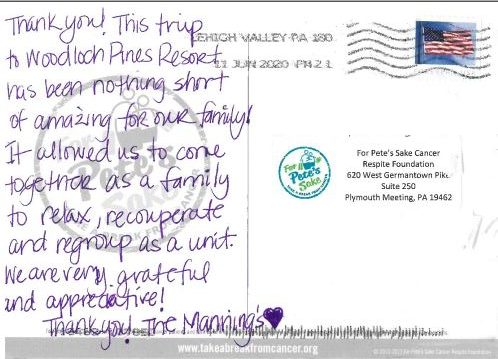 Thank you! This trip
to Woodloch Pines Resort
has been nothing short
of amazing for our family!
It allowed us to come
together as a family
to relax, recouperate
and regroup as a unit.
We are very grateful
and appreciative!
Thank you! The Manning's♥
LEHIGH VALLEY PA 180
11 JUN 2020 PM 2 L
For Pete's Sake Cancer
Respite Foundation
620 West Germantown Pike
Suite 250
Plymouth Meeting, PA 19462
For
Pete's
Sake
TAKE A BREAK FROM CANCER
Pete's
Sake
www.takeabreakfromcancer.org